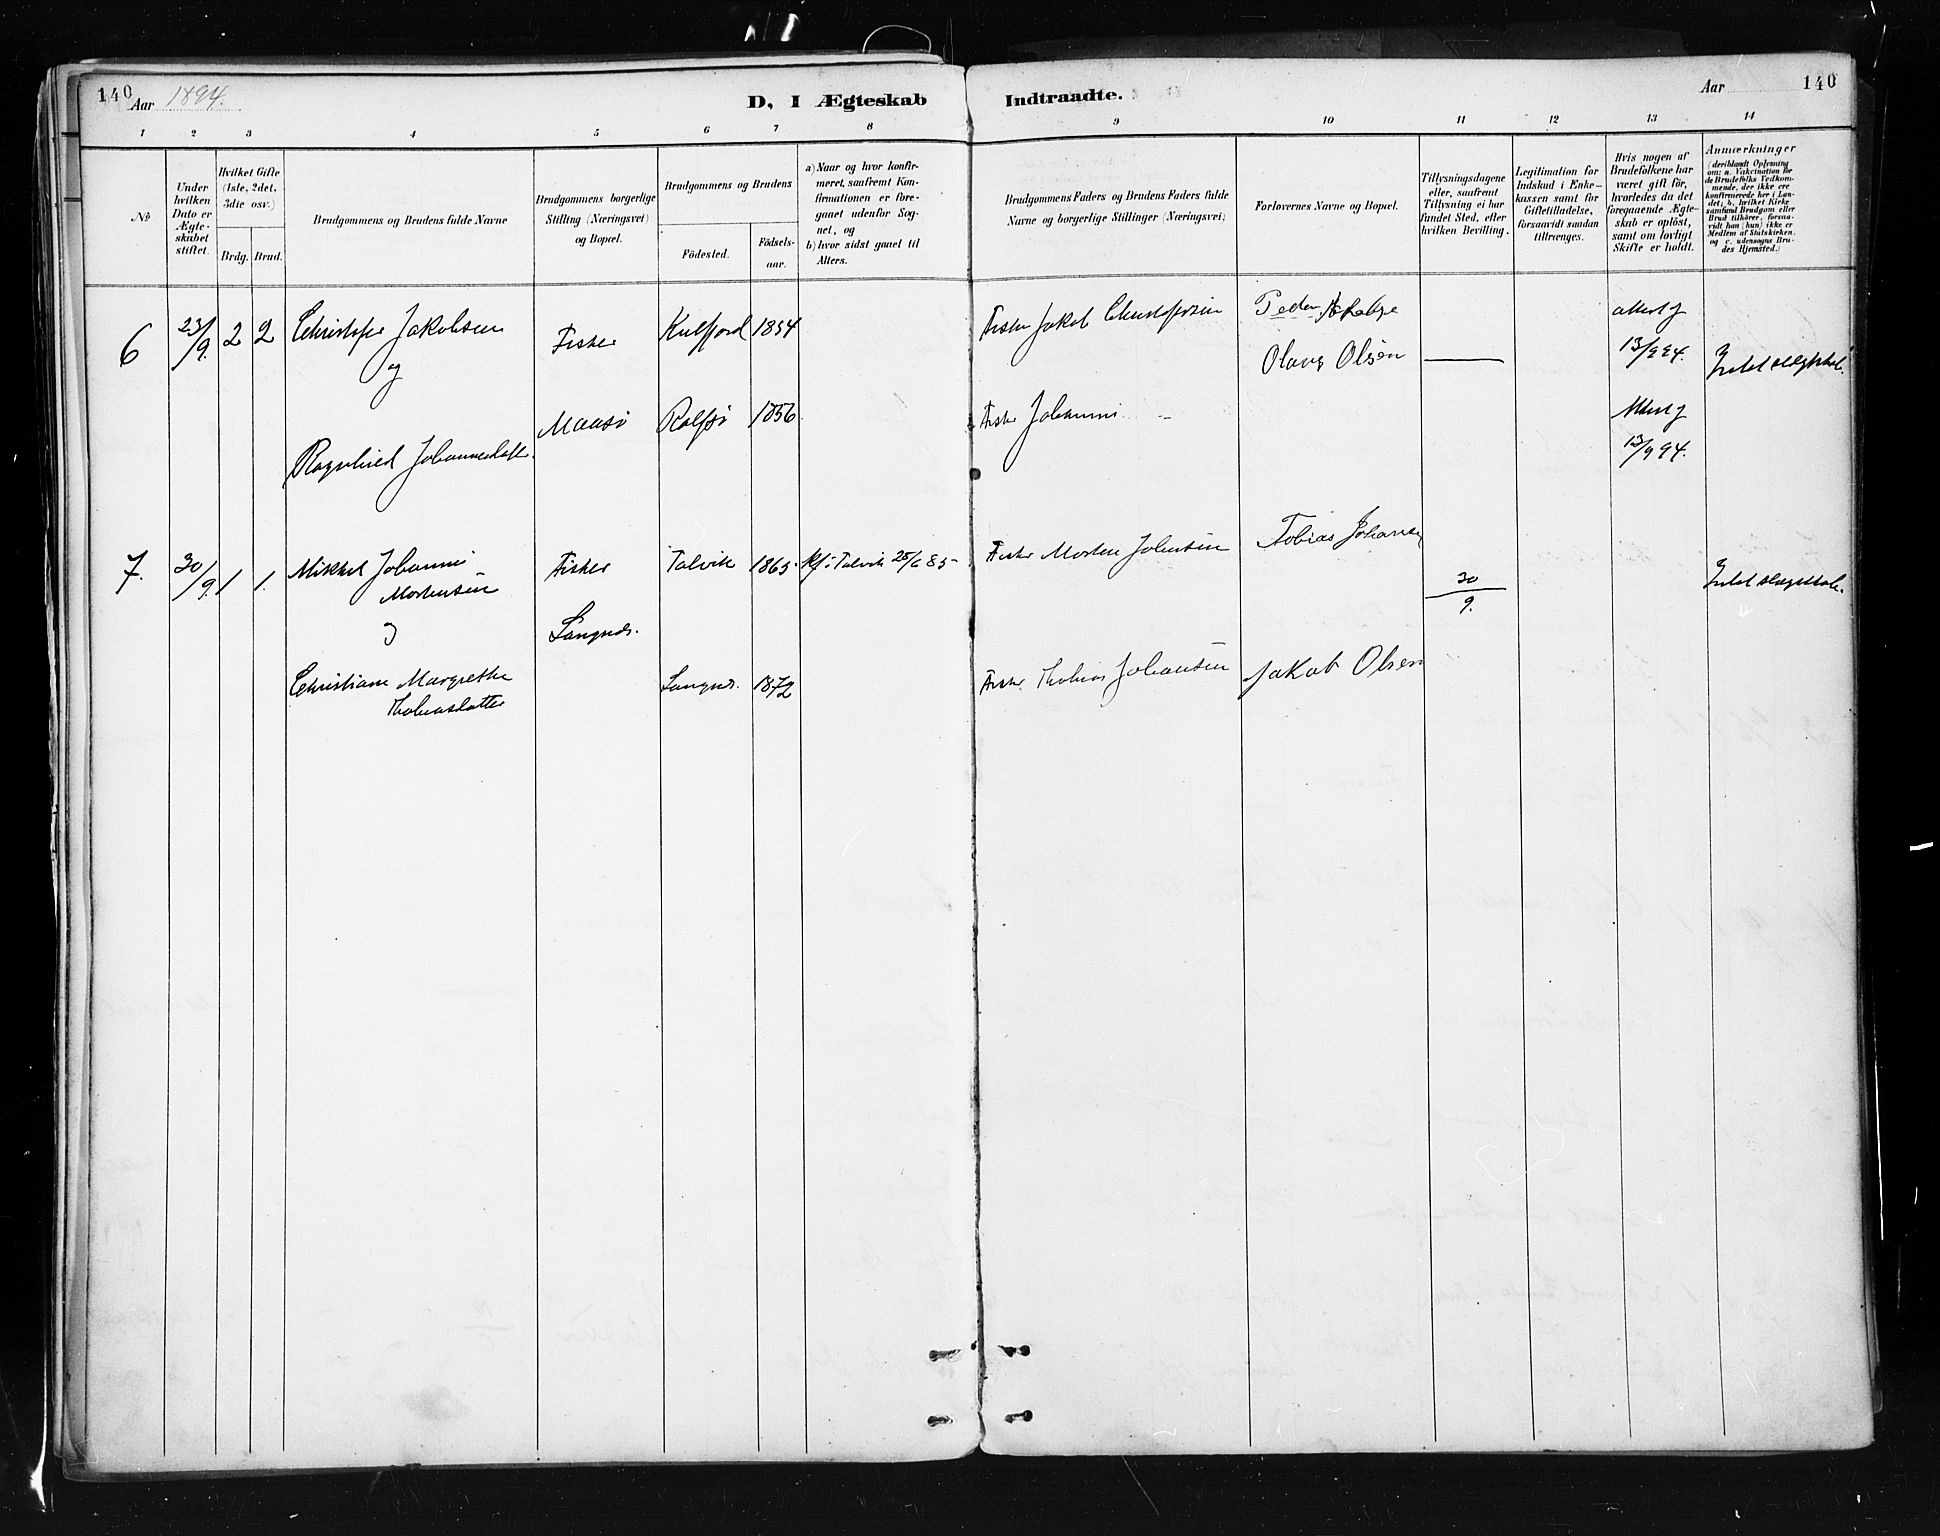 140 Aar 1894.
D, I Ægteskab Indtraadte.
Aar 140
1 2 3 4 5 6 7 8 9 10 11 12 13 14
No
Under hvilken Dato er Ægteskabet stiftet.
Hvilket Gifte (1ste, 2det, 3die osv.)
Brdg. Brud.
Brudgommens og Brudens fulde Navne
Brudgommens borgerlige Stilling (Næringsvei) og Bopæl.
Brudgommens og Brudens
Födested.
Födsels-aar.
a) Naar og hvor konfirmeret, saafremt Konfirmationen er foregaaet udenfor Sognet, og
b) hvor sidst gaaet til Alters.
Brudgommens Faders og Brudens Faders fulde Navne og borgerlige Stillinger (Næringsvei)
Forlovernes Navne og Bopæl.
Tillysningsdagene eller, saafremt Tillysning ei har fundet Sted, efter hvilken Bevilling.
Legitimation for Indskud i Enkekassen samt for Giftetilladelse, forsaavidt saadan tiltrænges.
Hvis nogen af Brudefolkene har været gift för, hvorledes da det foregaaende Ægteskab er oplöst, samt om lovligt Skifte er holdt.
Anmærkninger
(deriblandt Oplysning om: a. Vakcination for de Brudefolks Vedkommende, der ikke ere konfirmerede her i Landet; b. hvilket Kirkesamfund Brudgom eller Brud tilhörer, forsaavidt han (hun) ikke er Medlem af Statskirken. og c. udensogns Brudes Hjemsted.)
6 23/9. 2 2 Christofer Jakobsen Fisker 1854 Fisker Jakob Christofersen Peder
og Olaus Olsen 13/9 94.
Maasö Rolfsö 1856 Fisker Johannes
Ragnhild Johannesdatter. 13/9 94.
7. 30/9. 1 1. Mikkel Johannes Mortensen Fisker Talvik 1865. Kf. i Talvik 25/6 85 Fisker Morten Johnsen Tobias Johansen 30/9.
og Langnds.
Christiane Margrethe Thobiasdatter Langnds. 1872 Fisker Thobias Johansen Jakob Olsen